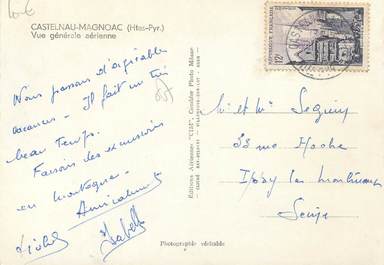 CASTELNAU-MAGNOAC (Htes-Pyr.)
Vue générale aérienne
Nous passons d'agréables
vacances - Il fait un très
beau temps.
Faisons des excursions
en montagne.
Amicalement
Michel Isabelle
Editions Aériennes "CIM" Combier Photo Mâcon
Photographie véritable
12F
Mr et Mme Seguin
33 rue Hoche
Issy les moulineaux
Seine